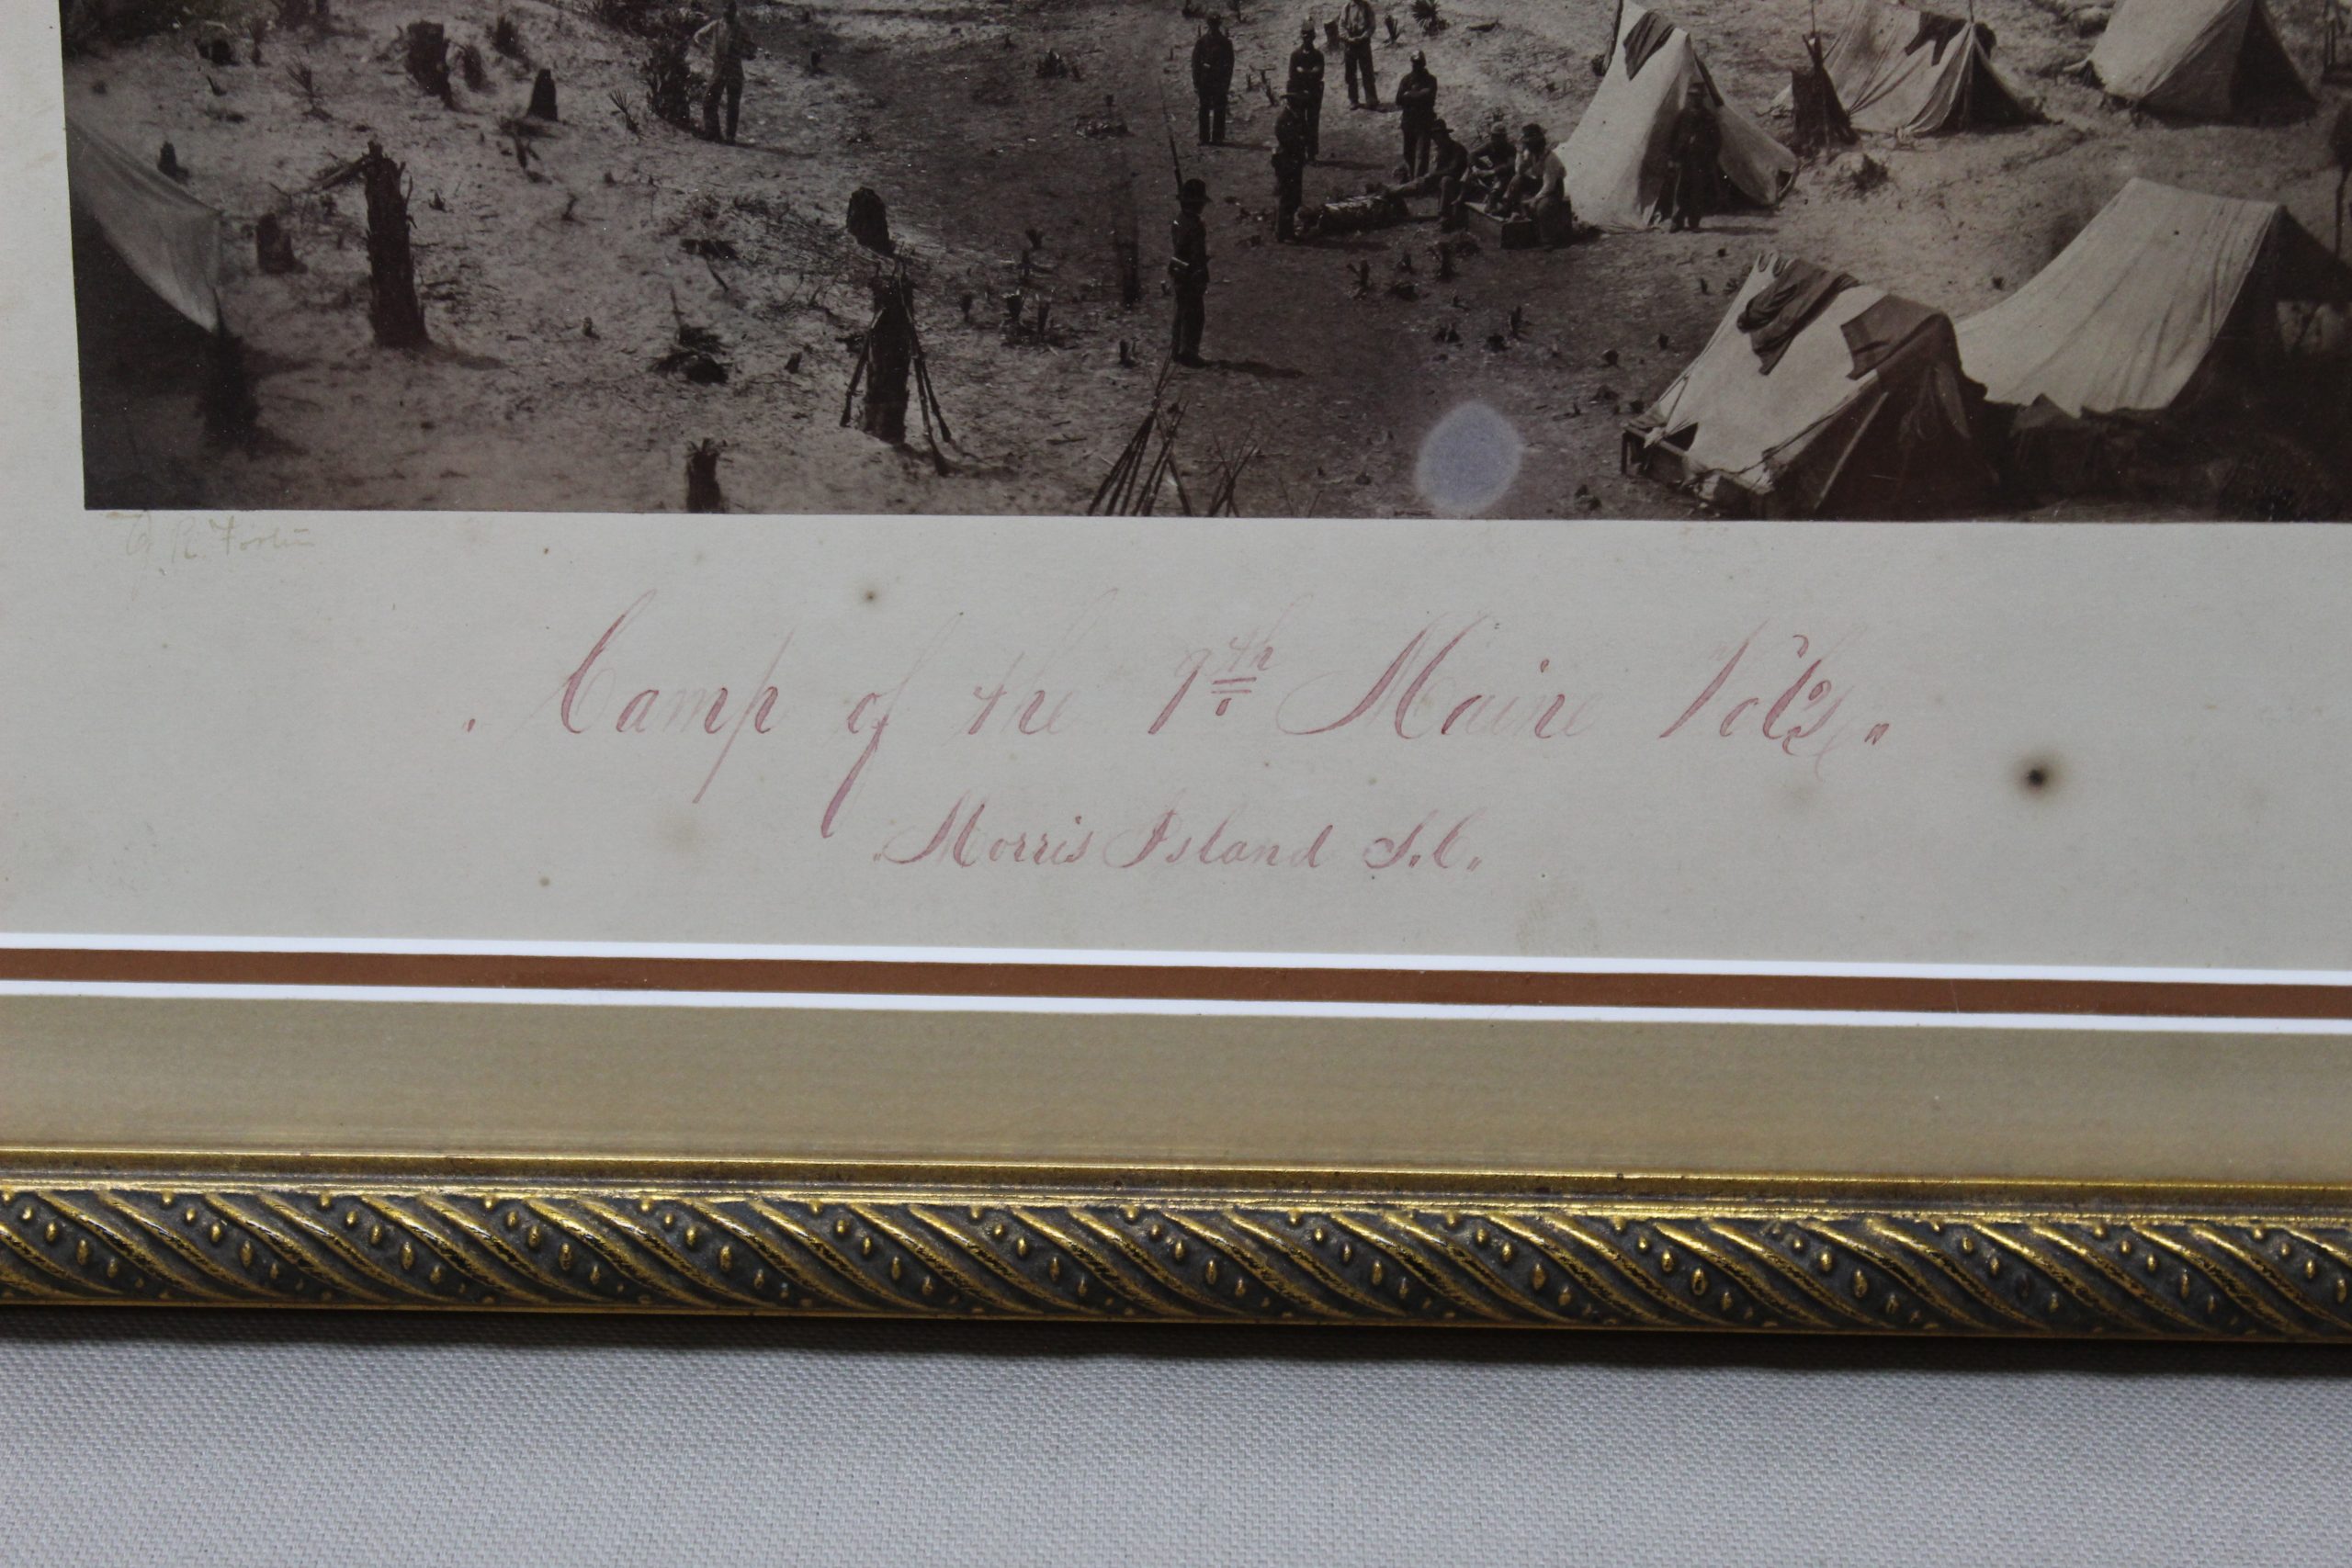 R. Foster
Camp of the 9th Maine Vols.
Morris Island S.C.